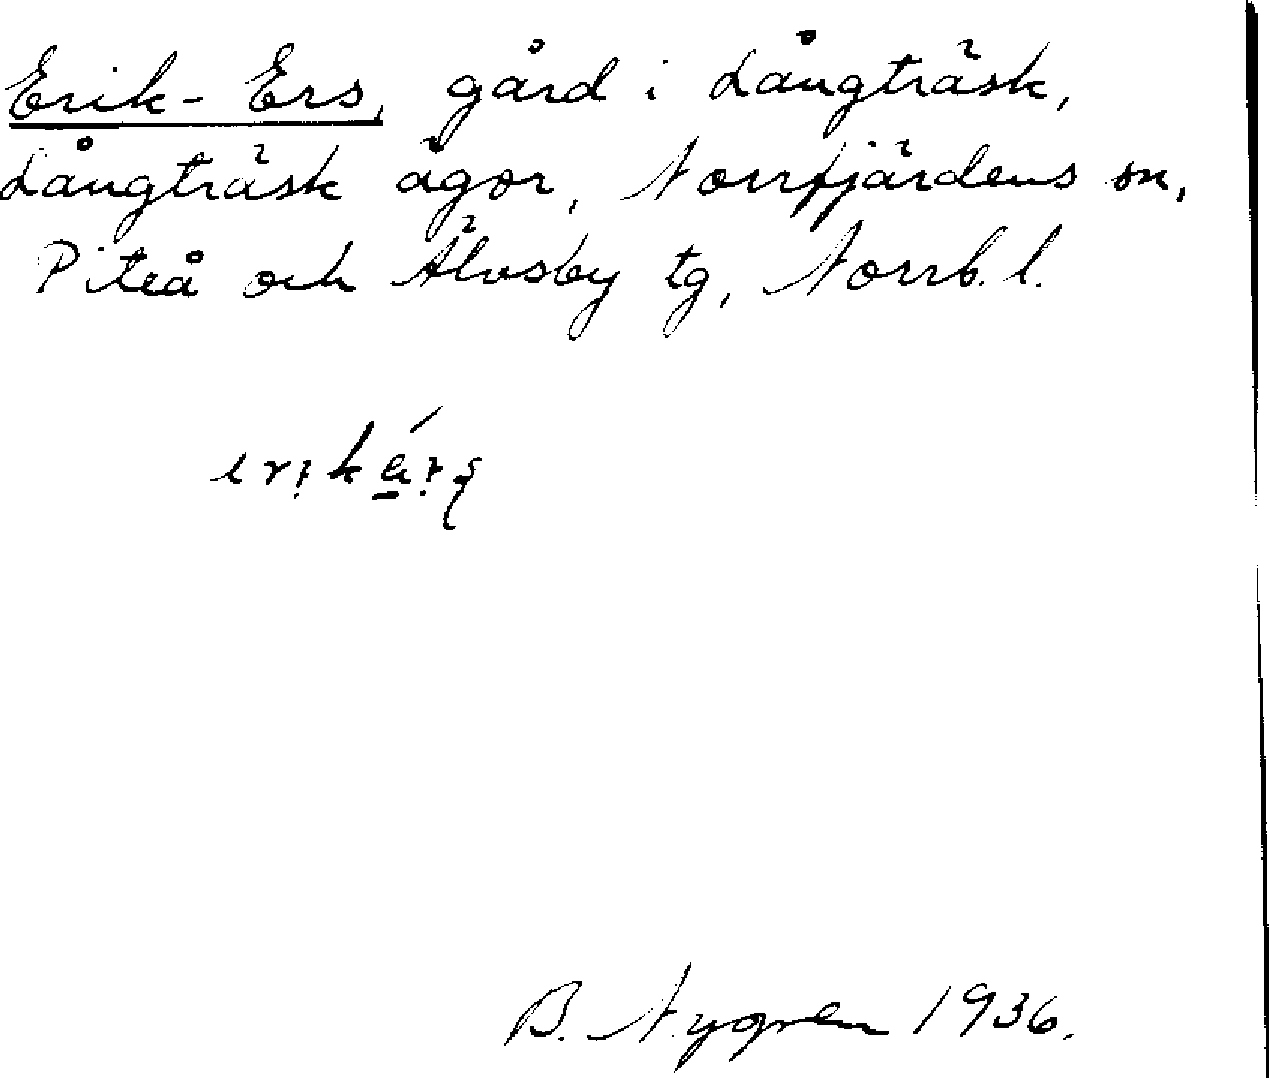 Erik-Ers, gård i Långträsk,
Långträsk ägor, Norrfjärdens sn,
Piteå och Älvsby tg, Norrb. l.
B. Nygren 1936.